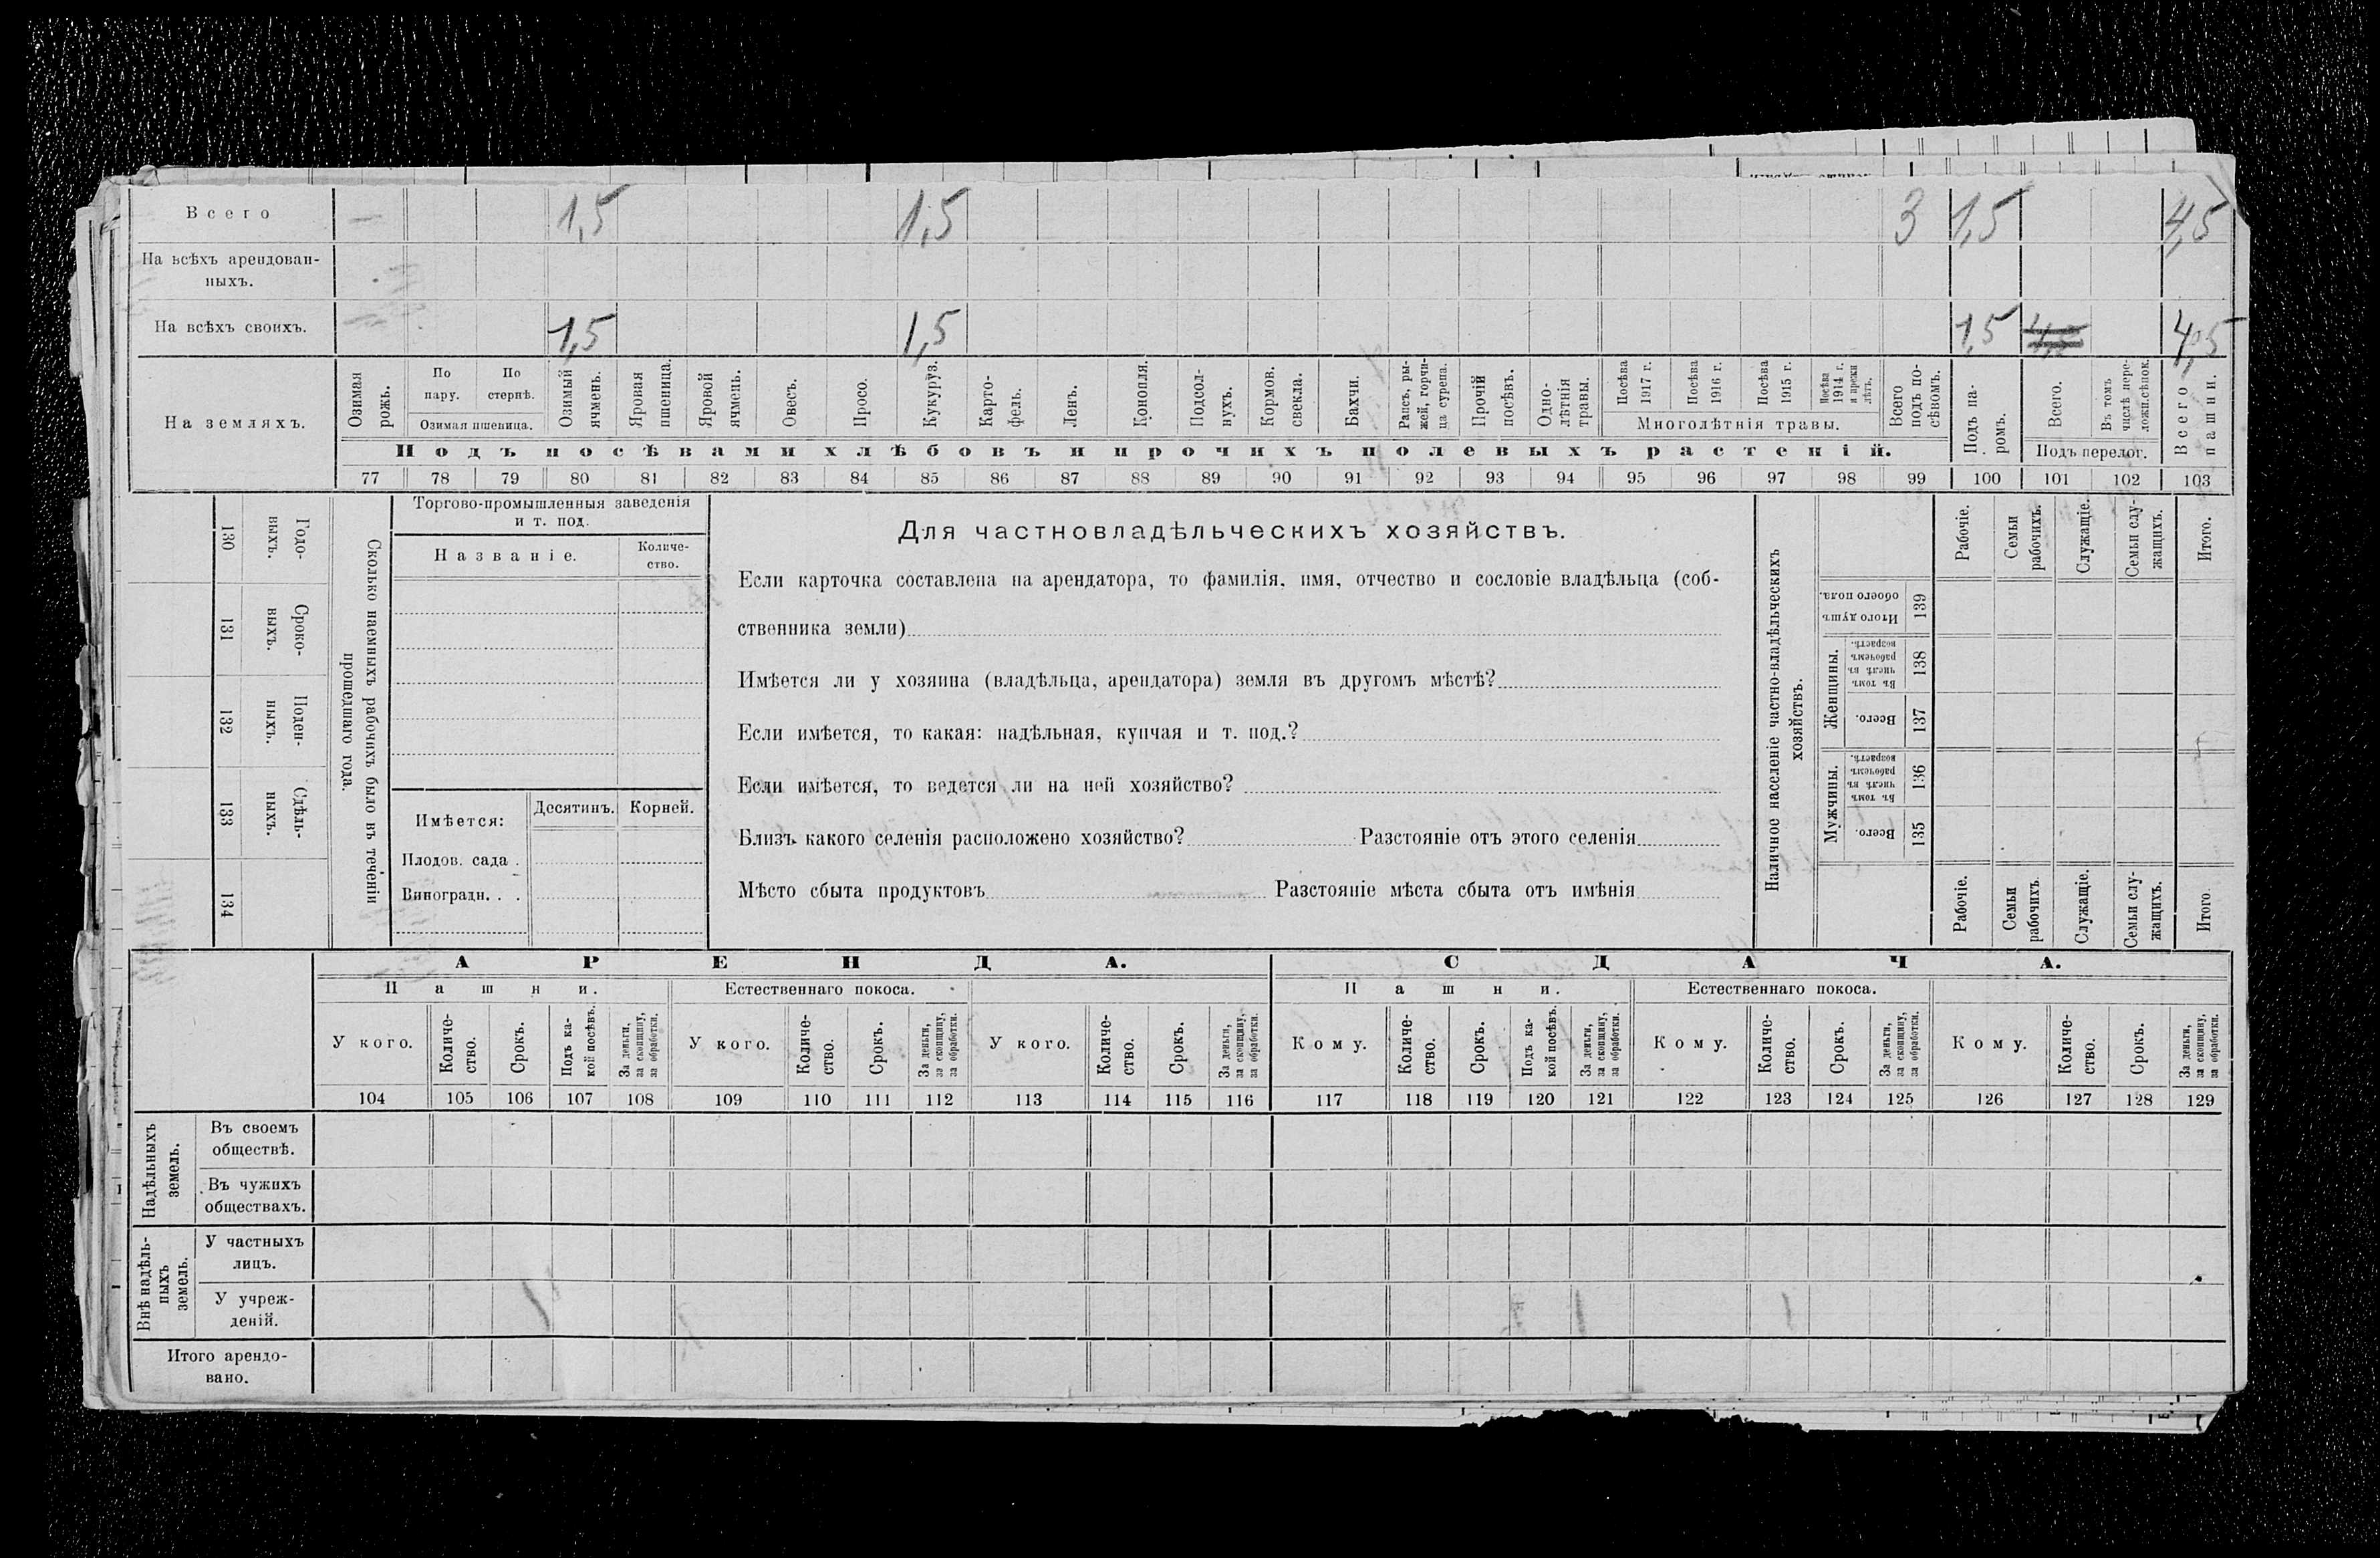 Всего — 1,5 1,5 3 1,5 4,5
На всѣхъ арендован-
ныхъ.
На всѣхъ своихъ. 1,5 1,5 1,5 4,5
На земляхъ.
Озимая рожь.
По пару.
По стернѣ.
Озимая пшеница.
Озимый ячмень.
Яровая пшеница.
Яровой ячмень.
Овесъ.
Просо.
Кукуруз.
Карто-
фель.
Ленъ.
Конопля.
Подсол-
нухъ.
Кормов. свекла.
Бахчи.
Рапсъ, ры-
жей, горчи-
ца сурепа.
Прочій посѣвъ.
Одно-
лѣтнія травы.
Посѣва 1917 г.
Посѣва 1916 г.
Посѣва 1915 г.
Посѣва 1914 г. и прежн лѣтъ.
Многолѣтнія травы.
Всего подъ по-
сѣвомъ.
Подъ па-
ромъ.
Всего.
Въ томъ числѣ пере-
ложн.сѣнок.
Подъ перелог.
Всего пашни.
Подъ посѣвами хлѣбовъ и прочихъ полевыхъ растеній.
77 78 79 80 81 82 83 84 85 86 87 88 89 90 91 92 93 94 95 96 97 98 99 100 101 102 103
Сколько наемныхъ рабочихъ было въ теченіи
прошедшаго года.
Годо-
выхъ.
130
Сроко-
выхъ.
131
Поден-
ныхъ.
132
Сдѣль-
ныхъ.
133
134
Торгово-промышленныя заведенія
и т. под.
Названіе.
Количе-
ство.
Имѣется:
Десятинъ. Корней.
Плодов. сада .
Виноградн. . .
Для частновладѣльческихъ хозяйствъ.
Если карточка составлена на арендатора, то фамилія, имя, отчество и сословіе владѣльца (соб-
ственника земли)
Имѣется ли у хозяина (владѣльца, арендатора) земля въ другомъ мѣстѣ?
Если имѣется, то какая: надѣльная, купчая и т. под.?
Если имѣется, то ведется ли на ней хозяйство?
Близъ какого селенія расположено хозяйство? Разстояніе отъ этого селенія
Мѣсто сбыта продуктовъ Разстояніе мѣста сбыта отъ имѣнія
Наличное населеніе частно-владѣльческихъ
хозяйствъ.
Рабочіе.
Семьи рабочихъ.
Служащіе.
Семьи слу-
жащихъ.
Итого.
Итого душъ обоего пола.
139
Женщины.
Въ томъ числѣ въ рабочемъ возрастѣ.
138
Всего.
137
Мужчины.
Въ томъ числѣ въ рабочемъ возрастѣ.
136
Всего.
135
Рабочіе.
Семьи рабочихъ
Служащіе.
Семьи слу-
жащихъ.
Итого
АРЕНДА. СДАЧА.
Пашни. Естественнаго покоса. Пашни. Естественнаго покоса.
У кого.
Количе-
ство.
Срокъ.
Подъ ка-
кой посѣвъ.
За деньги,
за скопщину,
за обработки.
У кого.
Количе-
ство.
Срокъ.
За деньги,
за скопщину,
за обработки.
У кого.
Количе-
ство.
Срокъ.
За деньги,
за скопщину,
за обработки.
Кому.
Количе-
ство.
Срокъ.
Подъ ка-
кой посѣвъ.
За деньги,
за скопщину,
за обработки.
Кому.
Количе-
ство.
Срокъ.
За деньги,
за скопщину,
за обработки.
Кому.
Количе-
ство.
Срокъ.
За деньги,
за скопщину,
за обработки.
104 105 106 107 108 109 110 111 112 113 114 115 116 117 118 119 120 121 122 123 124 125 126 127 128 129
Надѣльныхъ
земель.
Въ своемъ
обществѣ.
Въ чужихъ
обществахъ.
Внѣ надѣль-
ныхъ
земель.
У частныхъ
лицъ.
У учреж-
деній.
Итого арендо-
вано.